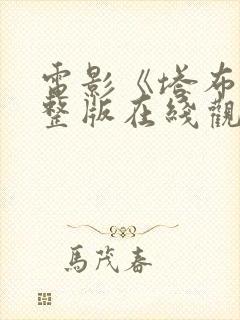 電影《塔布
整版在綫觀
馬茂春